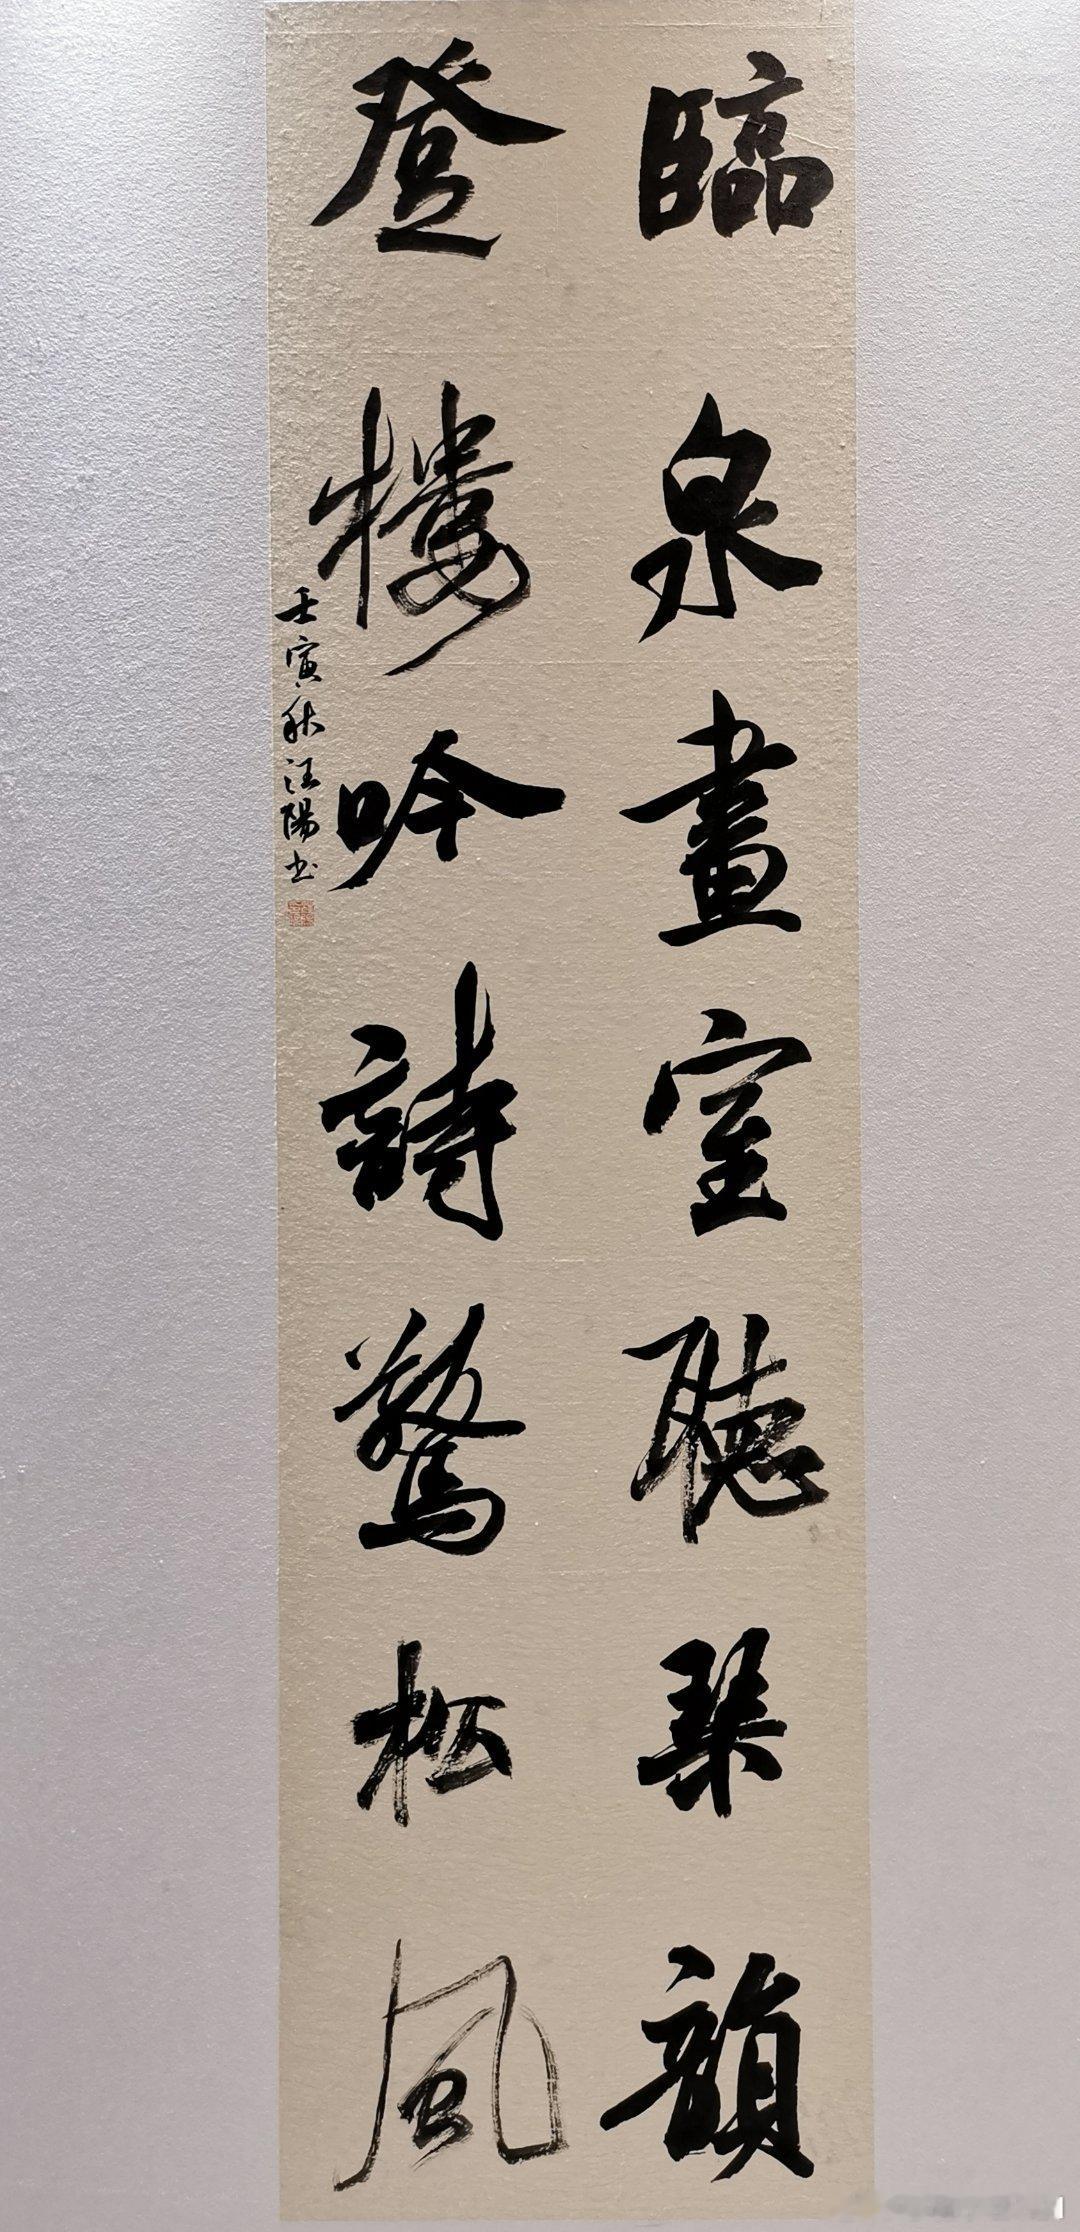 臨泉畫室聽琹韻
登樓吟詩驚松風
壬寅秋汪陽书